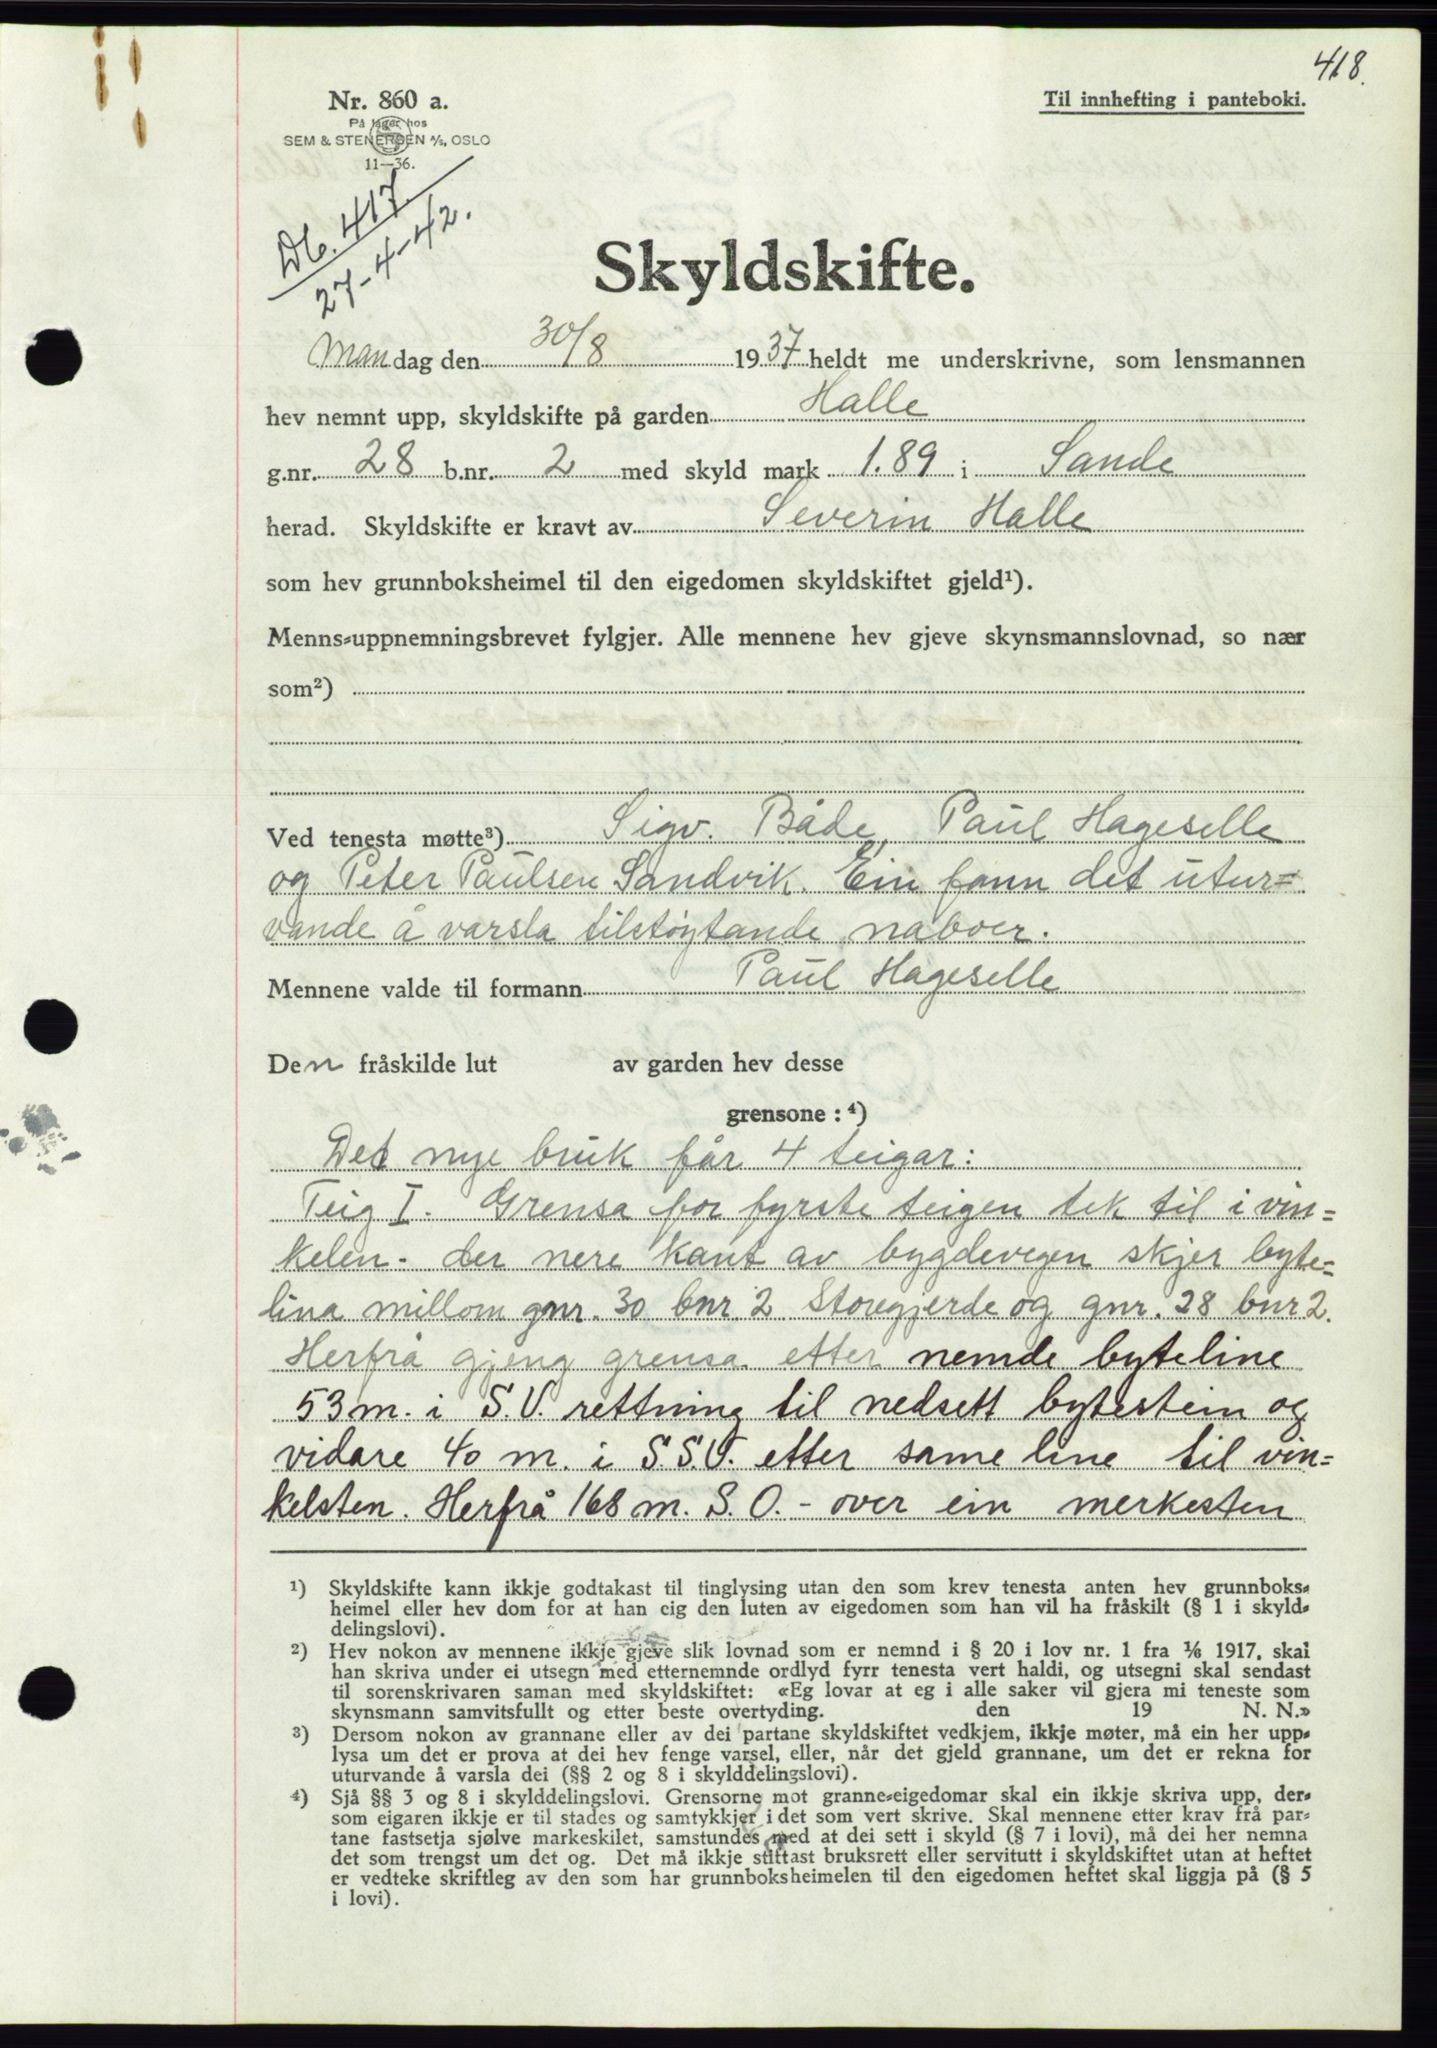 418.
Nr. 860 a.
Til innhefting i panteboki.
På lager hos
SEM & STENERSEN A/S, OSLO
11—36.
Db. 417
27-4-42.
Skyldskifte.
Mandag den 30/8 1937 heldt me underskrivne, som lensmannen
hev nemnt upp, skyldskifte på garden Halle
g.nr. 28 b.nr. 2 med skyld mark 1.89 i Sande
herad. Skyldskifte er kravt av Severin Halle
som hev grunnboksheimel til den eigedomen skyldskiftet gjeld¹).
Menns-uppnemningsbrevet fylgjer. Alle mennene hev gjeve skynsmannslovnad, so nær
som²)
Ved tenesta møtte³) Sigv. Både, Paul Hageselle
og Peter Paulsen Sandvik. Ein fann det utur=
vande å varsla tilstøytande naboer.
Mennene valde til formann Paul Hageselle
Den fråskilde lut av garden hev desse
grensone: ⁴)
Det nye bruk får 4 teigar:
Teig I. Grensa for fyrste teigen tek til i vin=
kelen - der nere kant av bygdevegen skjer byte=
lina millom gnr. 30 bnr. 2 Storegjerde og gnr. 28 bnr 2.
Herfrå gjeng grensa etter nemde byteline
53 m. i S.V. rettning til nedsett bytestein og
vidare 40 m. i S.S.V. etter same line til vin=
kelsten. Herfrå 168 m. S.O. - over ein merkesten
¹) Skyldskifte kann ikkje godtakast til tinglysing utan den som krev tenesta anten hev grunnboks-
heimel eller hev dom for at han eig den luten av eigedomen som han vil ha fråskilt (§ 1 i skyld-
delingslovi).
²) Hev nokon av mennene ikkje gjeve slik lovnad som er nemnd i § 20 i lov nr. 1 fra 1/6 1917, skal
han skriva under ei utsegn med etternemnde ordlyd fyrr tenesta vert haldi, og utsegni skal sendast
til sorenskrivaren saman med skyldskiftet: «Eg lovar at eg i alle saker vil gjera mi teneste som
skynsmann samvitsfullt og etter beste overtyding. den 19 N. N.»
³) Dersom nokon av grannane eller av dei partane skyldskiftet vedkjem, ikkje møter, må ein her upp-
lysa um det er prova at dei hev fenge varsel, eller, når det gjeld grannane, um det er rekna for
uturvande å varsla dei (§§ 2 og 8 i skylddelingslovi).
⁴) Sjå §§ 3 og 8 i skylddelingslovi. Grensorne mot granne-eigedomar skal ein ikkje skriva upp, der-
som eigaren ikkje er til stades og samtykkjer i det som vert skrive. Skal mennene etter krav frå par-
tane fastsetja sjølve markeskilet, samstundes med at dei sett i skyld (§ 7 i lovi), må dei her nemna
det som trengst um det og. Det må ikkje stiftast bruksrett eller servitutt i skyldskiftet utan at heftet
er vedteke skriftleg av den som har grunnboksheimelen til den eigedomen heftet skal liggja på (§ 5
i lovi).